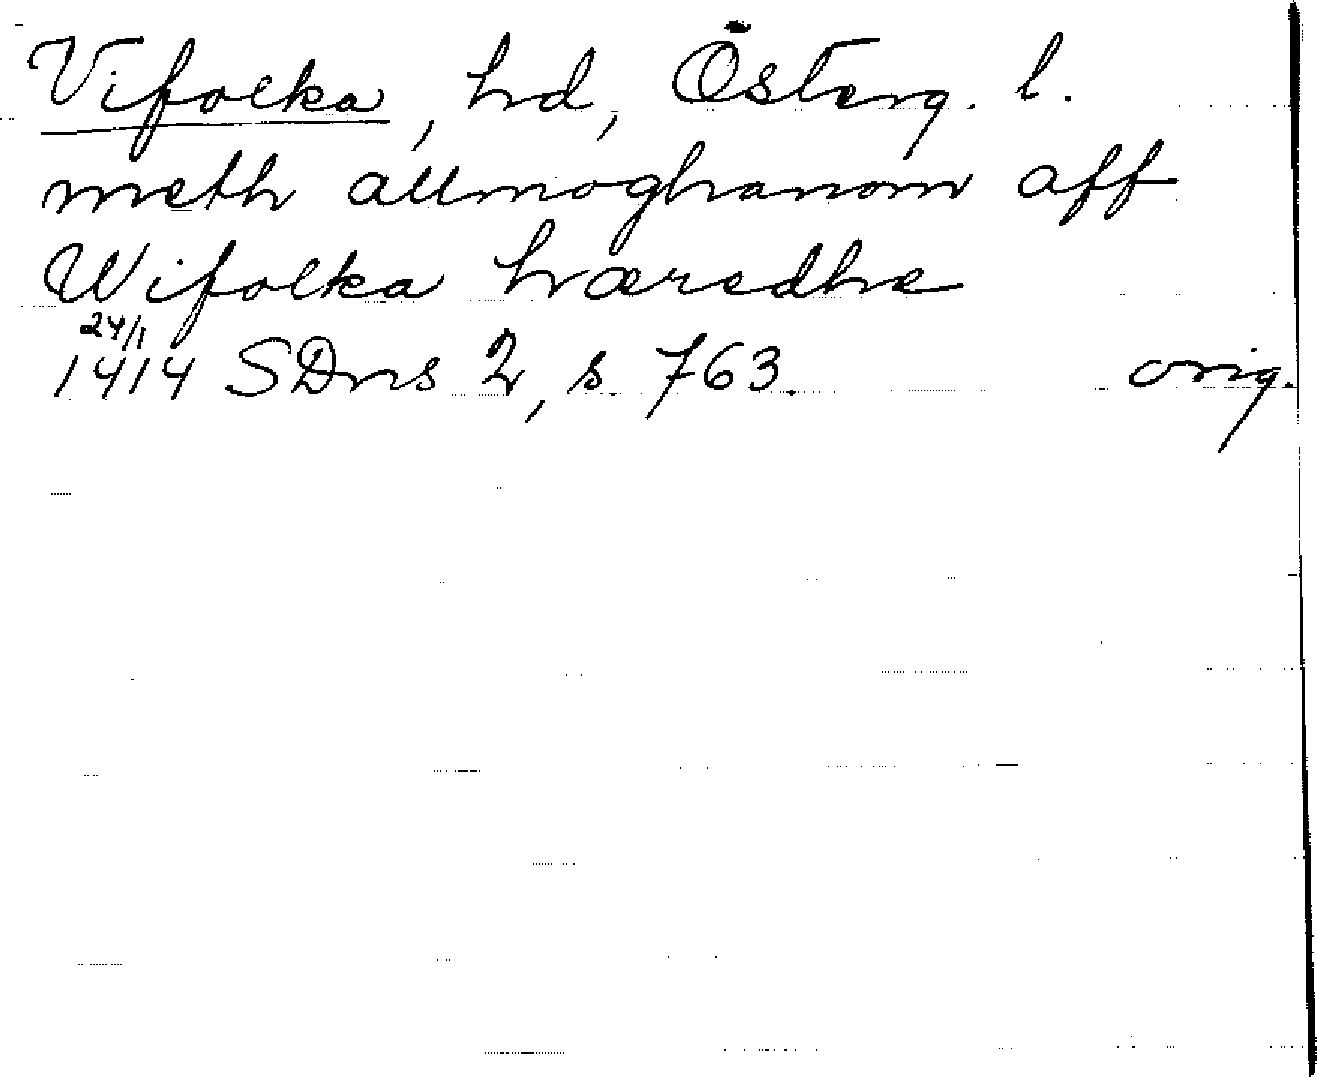 Vifolka, hd, Österg. l.
meth allmoghanom aff
Wifolka hæredhe
24/1
1414 SDns 2, s. 763. orig.